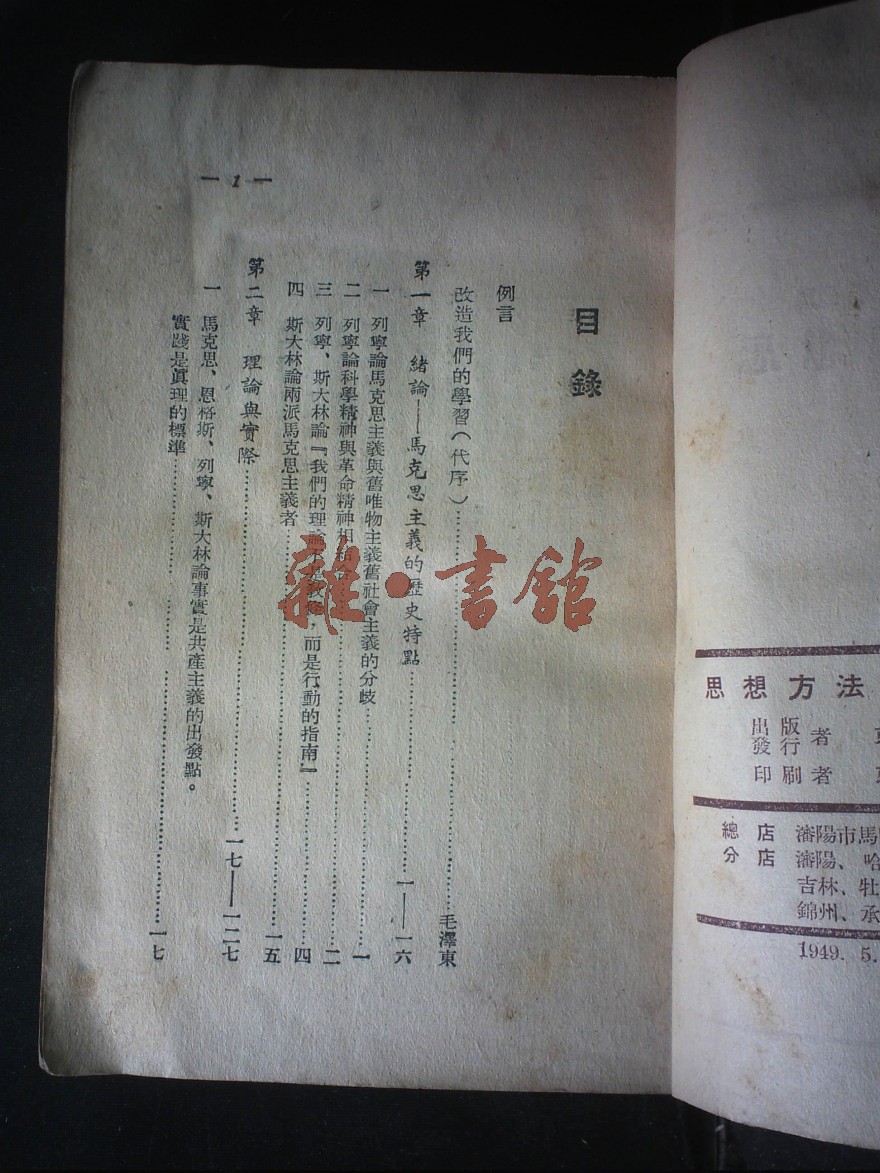 目錄
例言
改造我們的學習（代序）……毛澤東
第一章　緒論——馬克思主義的歷史特點……一—一六
一　列寧論馬克思主義與舊唯物主義舊社會主義的分歧……一
二　列寧論科學精神與革命精神相結合……二
三　列寧、斯大林論『我們的理論不是教條，而是行動的指南』……四
四　斯大林論兩派馬克思主義者……一五
第二章　理論與實際……一七—一二七
一　馬克思、恩格斯、列寧、斯大林論事實是共產主義的出發點。
實踐是眞理的標準……一七
— 1 —
雜·書館
思想方法
出版
發行者
印刷者
總店　瀋陽市馬
分店　瀋陽、哈
吉林、牡
錦州、承
1949. 5.